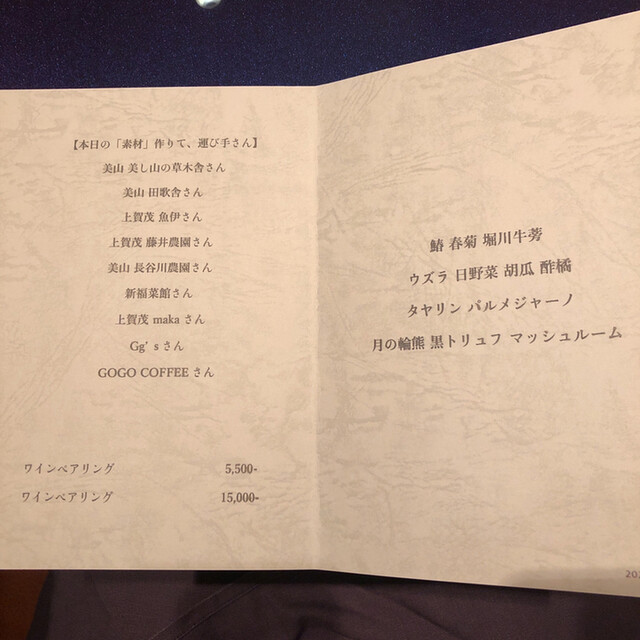 【本日の「素材」作りて、運び手さん】
美山 美し山の草木舎さん
美山 田歌舎さん
上賀茂 魚伊さん
上賀茂 藤井農園さん
美山 長谷川農園さん
新福菜館さん
上賀茂 maka さん
Gg’s さん
GOGO COFFEE さん
ワインペアリング 5,500-
ワインペアリング 15,000-
鰆 春菊 堀川牛蒡
ウズラ 日野菜 胡瓜 酢橘
タヤリン パルメジャーノ
月の輪熊 黒トリュフ マッシュルーム